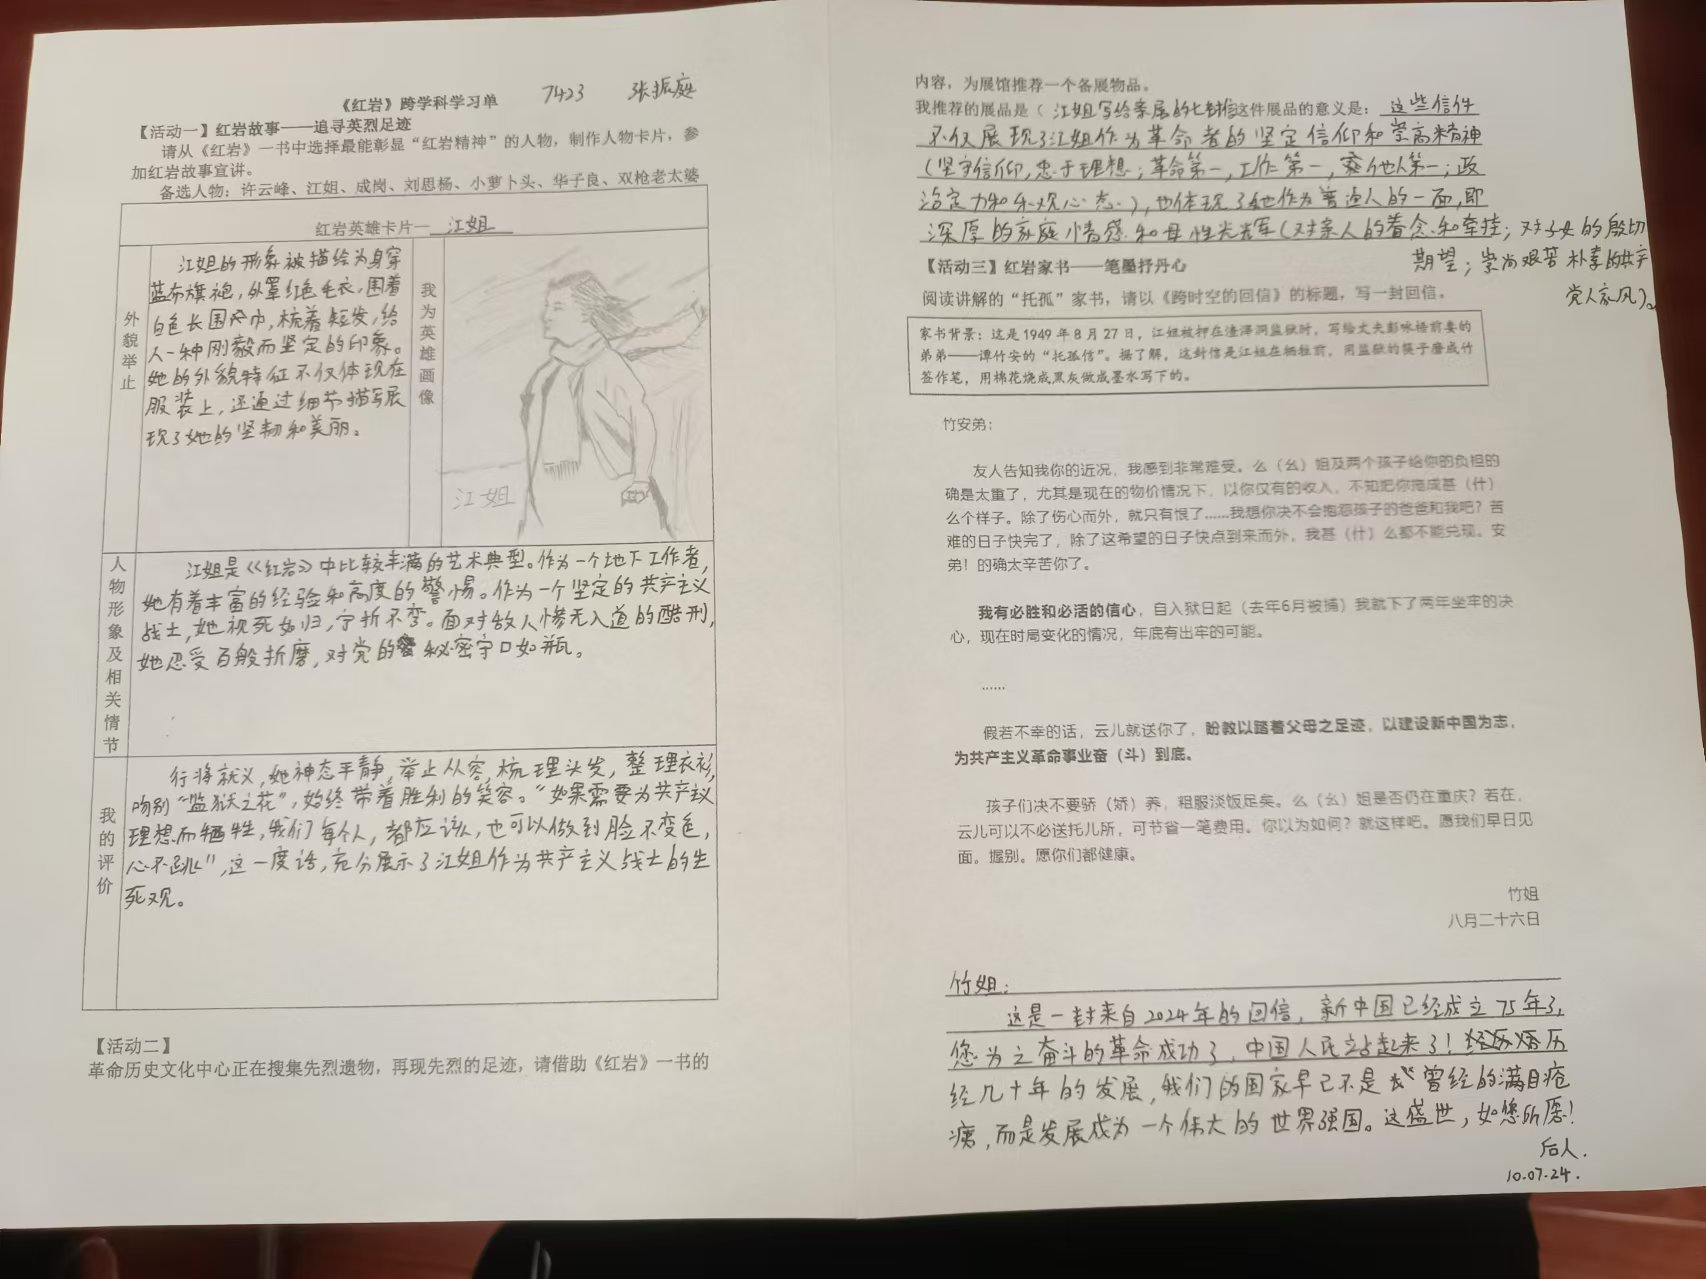 《红岩》跨学科学习单 7423 张振庭
【活动一】红岩故事——追寻英烈足迹
请从《红岩》一书中选择最能彰显“红岩精神”的人物，制作人物卡片，参
加红岩故事宣讲。
备选人物：许云峰、江姐、成岗、刘思杨、小萝卜头、华子良、双枪老太婆
红岩英雄卡片—江姐
外貌举止
江姐的形象被描绘为身穿
蓝布旗袍，外罩红色毛衣，围着
白色长围巾，梳着短发，给
人一种刚毅而坚定的印象。
她的外貌特征不仅体现在
服装上，还通过细节描写展
现了她的坚韧和美丽。
我为英雄画像
江姐
人物形象及相关情节
江姐是《红岩》中比较丰满的艺术典型。作为一个地下工作者，
她有着丰富的经验和高度的警惕。作为一个坚定的共产主义
战士，她视死如归，宁折不弯。面对敌人惨无人道的酷刑，
她忍受百般折磨，对党的秘密守口如瓶。
我的评价
行将就义，她神态平静，举止从容，梳理头发，整理衣衫，
吻别“监狱之花”，始终带着胜利的笑容。“如果需要为共产主义
理想而牺牲，我们每个人，都应该，也可以做到脸不变色，
心不跳”，这一度话，充分展示了江姐作为共产主义战士的生
死观。
【活动二】
革命历史文化中心正在搜集先烈遗物，再现先烈的足迹，请借助《红岩》一书的
内容，为展馆推荐一个备展物品。
我推荐的展品是（江姐写给亲属的七封信这件展品的意义是：这些信件
不仅展现了江姐作为革命者的坚定信仰和崇高精神
（坚守信仰，忠于理想；革命第一，工作第一，他人第一；政
治定力和乐观心态），也体现了她作为普通人的一面，即
深厚的家庭情感和母性光辉（对亲人的眷念和牵挂；对子女的殷切
期望；崇尚艰苦朴素的共产
党人家风）。
【活动三】红岩家书——笔墨抒丹心
阅读讲解的“托孤”家书，请以《跨时空的回信》的标题，写一封回信。
家书背景：这是1949年8月27日，江姐被押在渣滓洞监狱时，写给丈夫彭咏梧前妻的
弟弟——谭竹安的“托孤信”。据了解，这封信是江姐在牺牲前，用监狱的筷子磨成竹
签作笔，用棉花烧成黑灰做成墨水写下的。
竹安弟：
友人告知我你的近况，我感到非常难受。么（幺）姐及两个孩子给你的负担的
确是太重了，尤其是现在的物价情况下，以你仅有的收入，不知把你拖成甚（什）
么个样子。除了伤心而外，就只有恨了......我想你决不会抱怨孩子的爸爸和我吧？苦
难的日子快完了，除了这希望的日子快点到来而外，我甚（什）么都不能兑现。安
弟！的确太辛苦你了。
我有必胜和必活的信心，自入狱日起（去年6月被捕）我就下了两年坐牢的决
心，现在时局变化的情况，年底有出牢的可能。
......
假若不幸的话，云儿就送你了，盼教以踏着父母之足迹，以建设新中国为志，
为共产主义革命事业奋（斗）到底。
孩子们决不要骄（娇）养，粗服淡饭足矣。么（幺）姐是否仍在重庆？若在，
云儿可以不必送托儿所，可节省一笔费用。你以为如何？就这样吧。愿我们早日见
面。握别。愿你们都健康。
竹姐
八月二十六日
竹姐：
这是一封来自2024年的回信，新中国已经成立75年了，
您为之奋斗的革命成功了，中国人民站起来了！历
经几十年的发展，我们的国家早已不是曾经的满目疮
痍，而是发展成为一个伟大的世界强国。这盛世，如您所愿！
后人．
10.07.24.